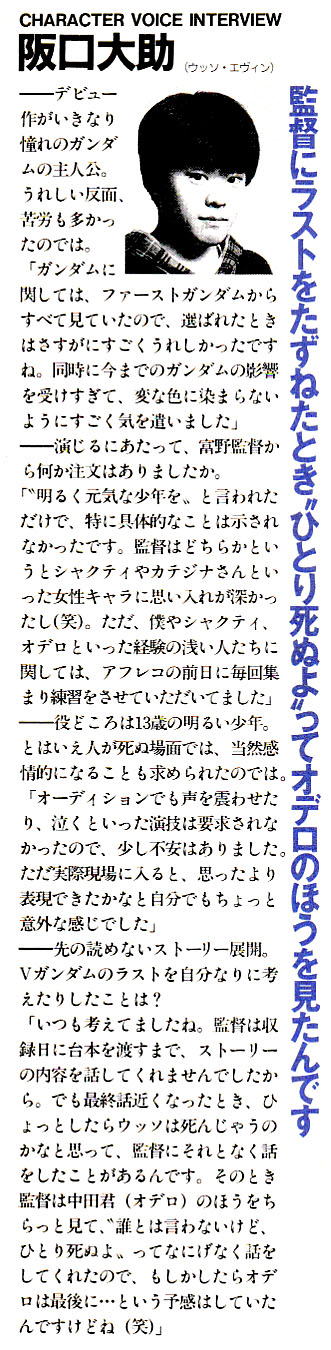 CHARACTER VOICE INTERVIEW
阪口大助(ウッソ・エヴィン)
監督にラストをたずねたとき〝ひとり死ぬよ〟ってオデロのほうを見たんです
――デビュー
作がいきなり
憧れのガンダ
ムの主人公。
うれしい反面、
苦労も多かっ
たのでは。
「ガンダムに
関しては、ファーストガンダムから
すべて見ていたので、選ばれたとき
はさすがにすごくうれしかったです
ね。同時に今までのガンダムの影響
を受けすぎて、変な色に染まらない
ようにすごく気を遣いました」
――演じるにあたって、富野監督か
ら何か注文はありましたか。
「〝明るく元気な少年を〟と言われた
だけで、特に具体的なことは示され
なかったです。監督はどちらかとい
うとシャクティやカテジナさんとい
った女性キャラに思い入れが深かっ
たし(笑)。ただ、僕やシャクティ、
オデロといった経験の浅い人たちに
関しては、アフレコの前日に毎回集
まり練習をさせていただいてました」
――役どころは13歳の明るい少年。
とはいえ人が死ぬ場面では、当然感
情的になることも求められたのでは。
「オーディションでも声を震わせた
り、泣くといった演技は要求されな
かったので、少し不安はありました。
ただ実際現場に入ると、思ったより
表現できたかなと自分でもちょっと
意外な感じでした」
――先の読めないストーリー展開。
Vガンダムのラストを自分なりに考
えたりしたことは?
「いつも考えてましたね。監督は収
録日に台本を渡すまで、ストーリー
の内容を話してくれませんでしたか
ら。でも最終話近くなったとき、ひ
ょっとしたらウッソは死んじゃうの
かなと思って、監督にそれとなく話
をしたことがあるんです。そのとき
監督は中田君(オデロ)のほうをち
らっと見て、〝誰とは言わないけど、
ひとり死ぬよ〟ってなにげなく話を
してくれたので、もしかしたらオデ
ロは最後に…という予感はしていた
んですけどね(笑)」